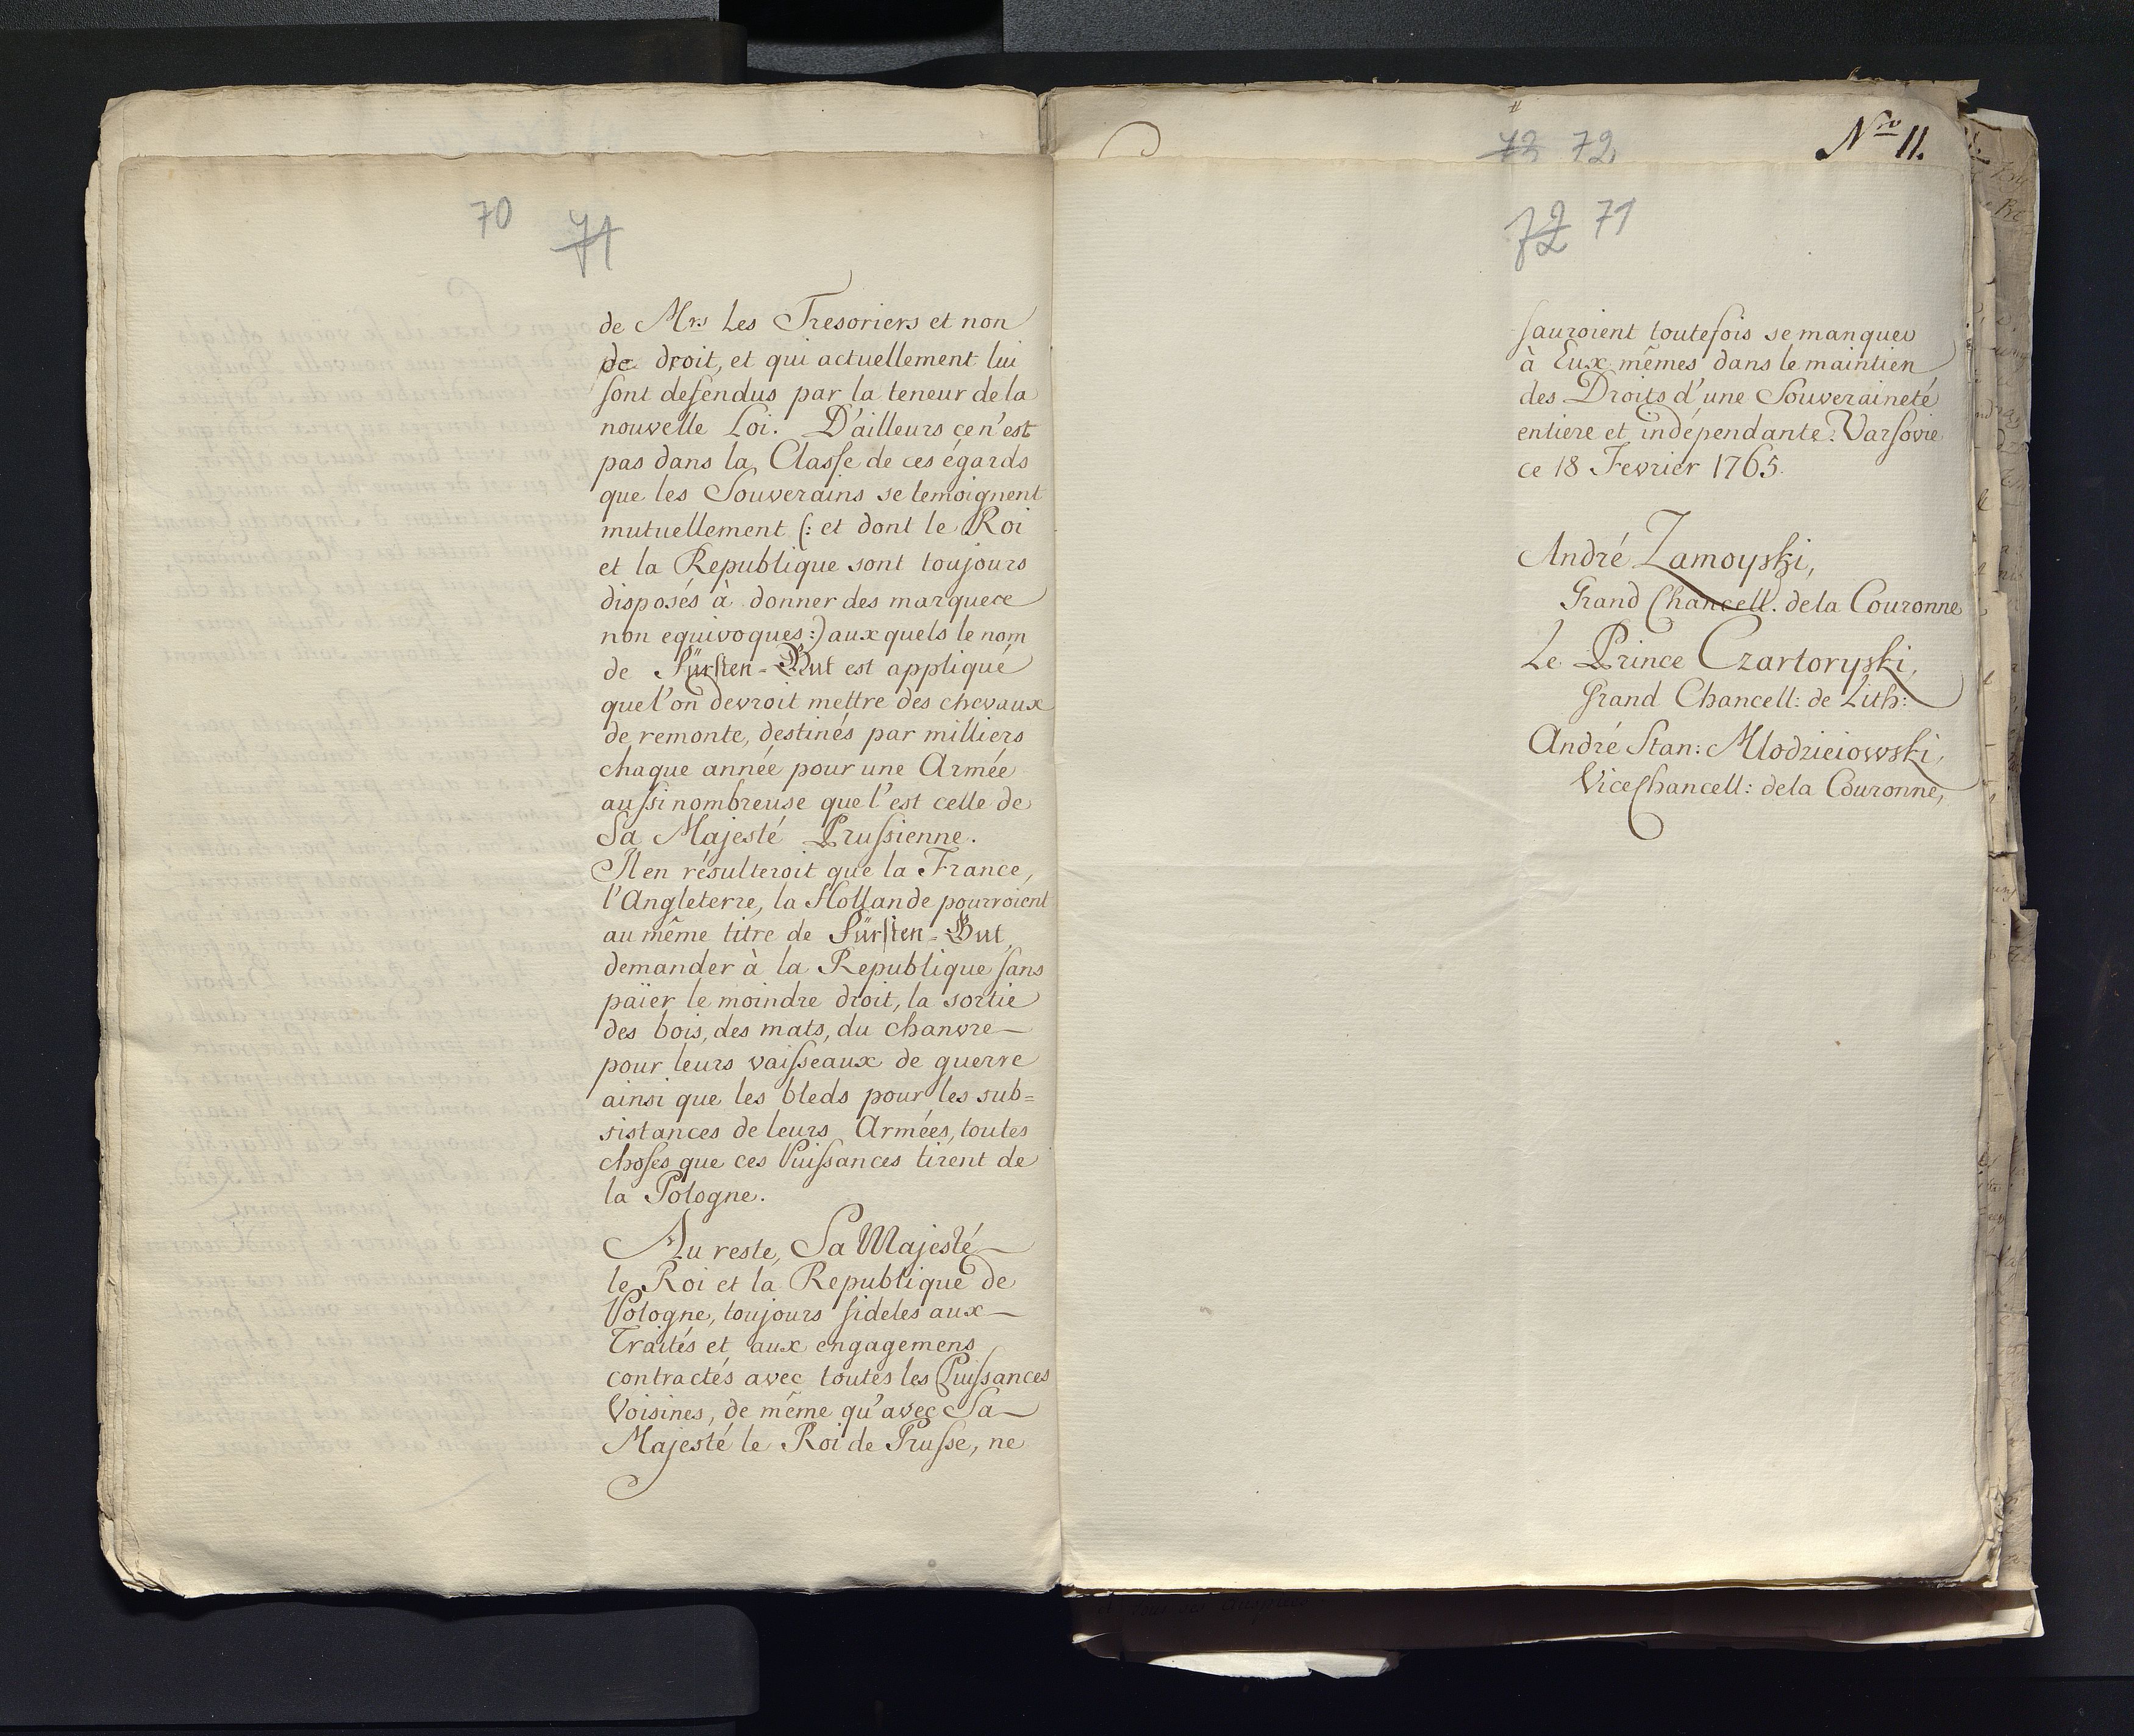 70 71
de Mrs Les Tresoriers et non
de droit, et qui actuellement lui
sont defendus par la teneur de la
nouvelle Loi. D'ailleurs ce n'est
pas dans la Classe de ces égards
que les Souverains se temoignent
mutuellement (: et dont le Roi
et la Republique sont toujours
disposés à donner des marquece
non equivoques :) aux quels le nom
de Fürsten-Gut est appliqué
que l'on devroit mettre des chevaux
de remonte, destinés par milliers
chaque année pour une Armée
aussi nombreuse que l'est celle de
Sa Majesté Prussienne.
Il en résulteroit que la France,
l'Angleterre, la Hollande pourroient
au même titre de Fürsten-Gut,
demander à la Republique sans
païer le moindre droit, la sortie
des bois, des mats, du chanvre
pour leurs vaisseaux de guerre
ainsi que les bleds pour les sub=
sistances de leurs Armées, toutes
choses que ces Puissances tirent de
la Pologne.
Au reste, Sa Majesté
le Roi et la Republique de
Pologne, toujours fideles aux
Traités et aux engagemens
contractés avec toutes les Puissances
Voisines, de même qu'avec Sa
Majesté le Roi de Prusse, ne
73 72
Nro 11.
72 71
sauroient toutefois se manquer
à Eux mêmes dans le maintien
des Droits d'une Souveraineté
entiere et indépendante. Varsovie
ce 18 Fevrier 1765.
André Zamoyski,
Grand Chancell. de la Couronne
Le Prince Czartoryski,
Grand Chancell: de Lith:
André Stan: Mlodzieiowski,
Vice Chancell: de la Couronne,